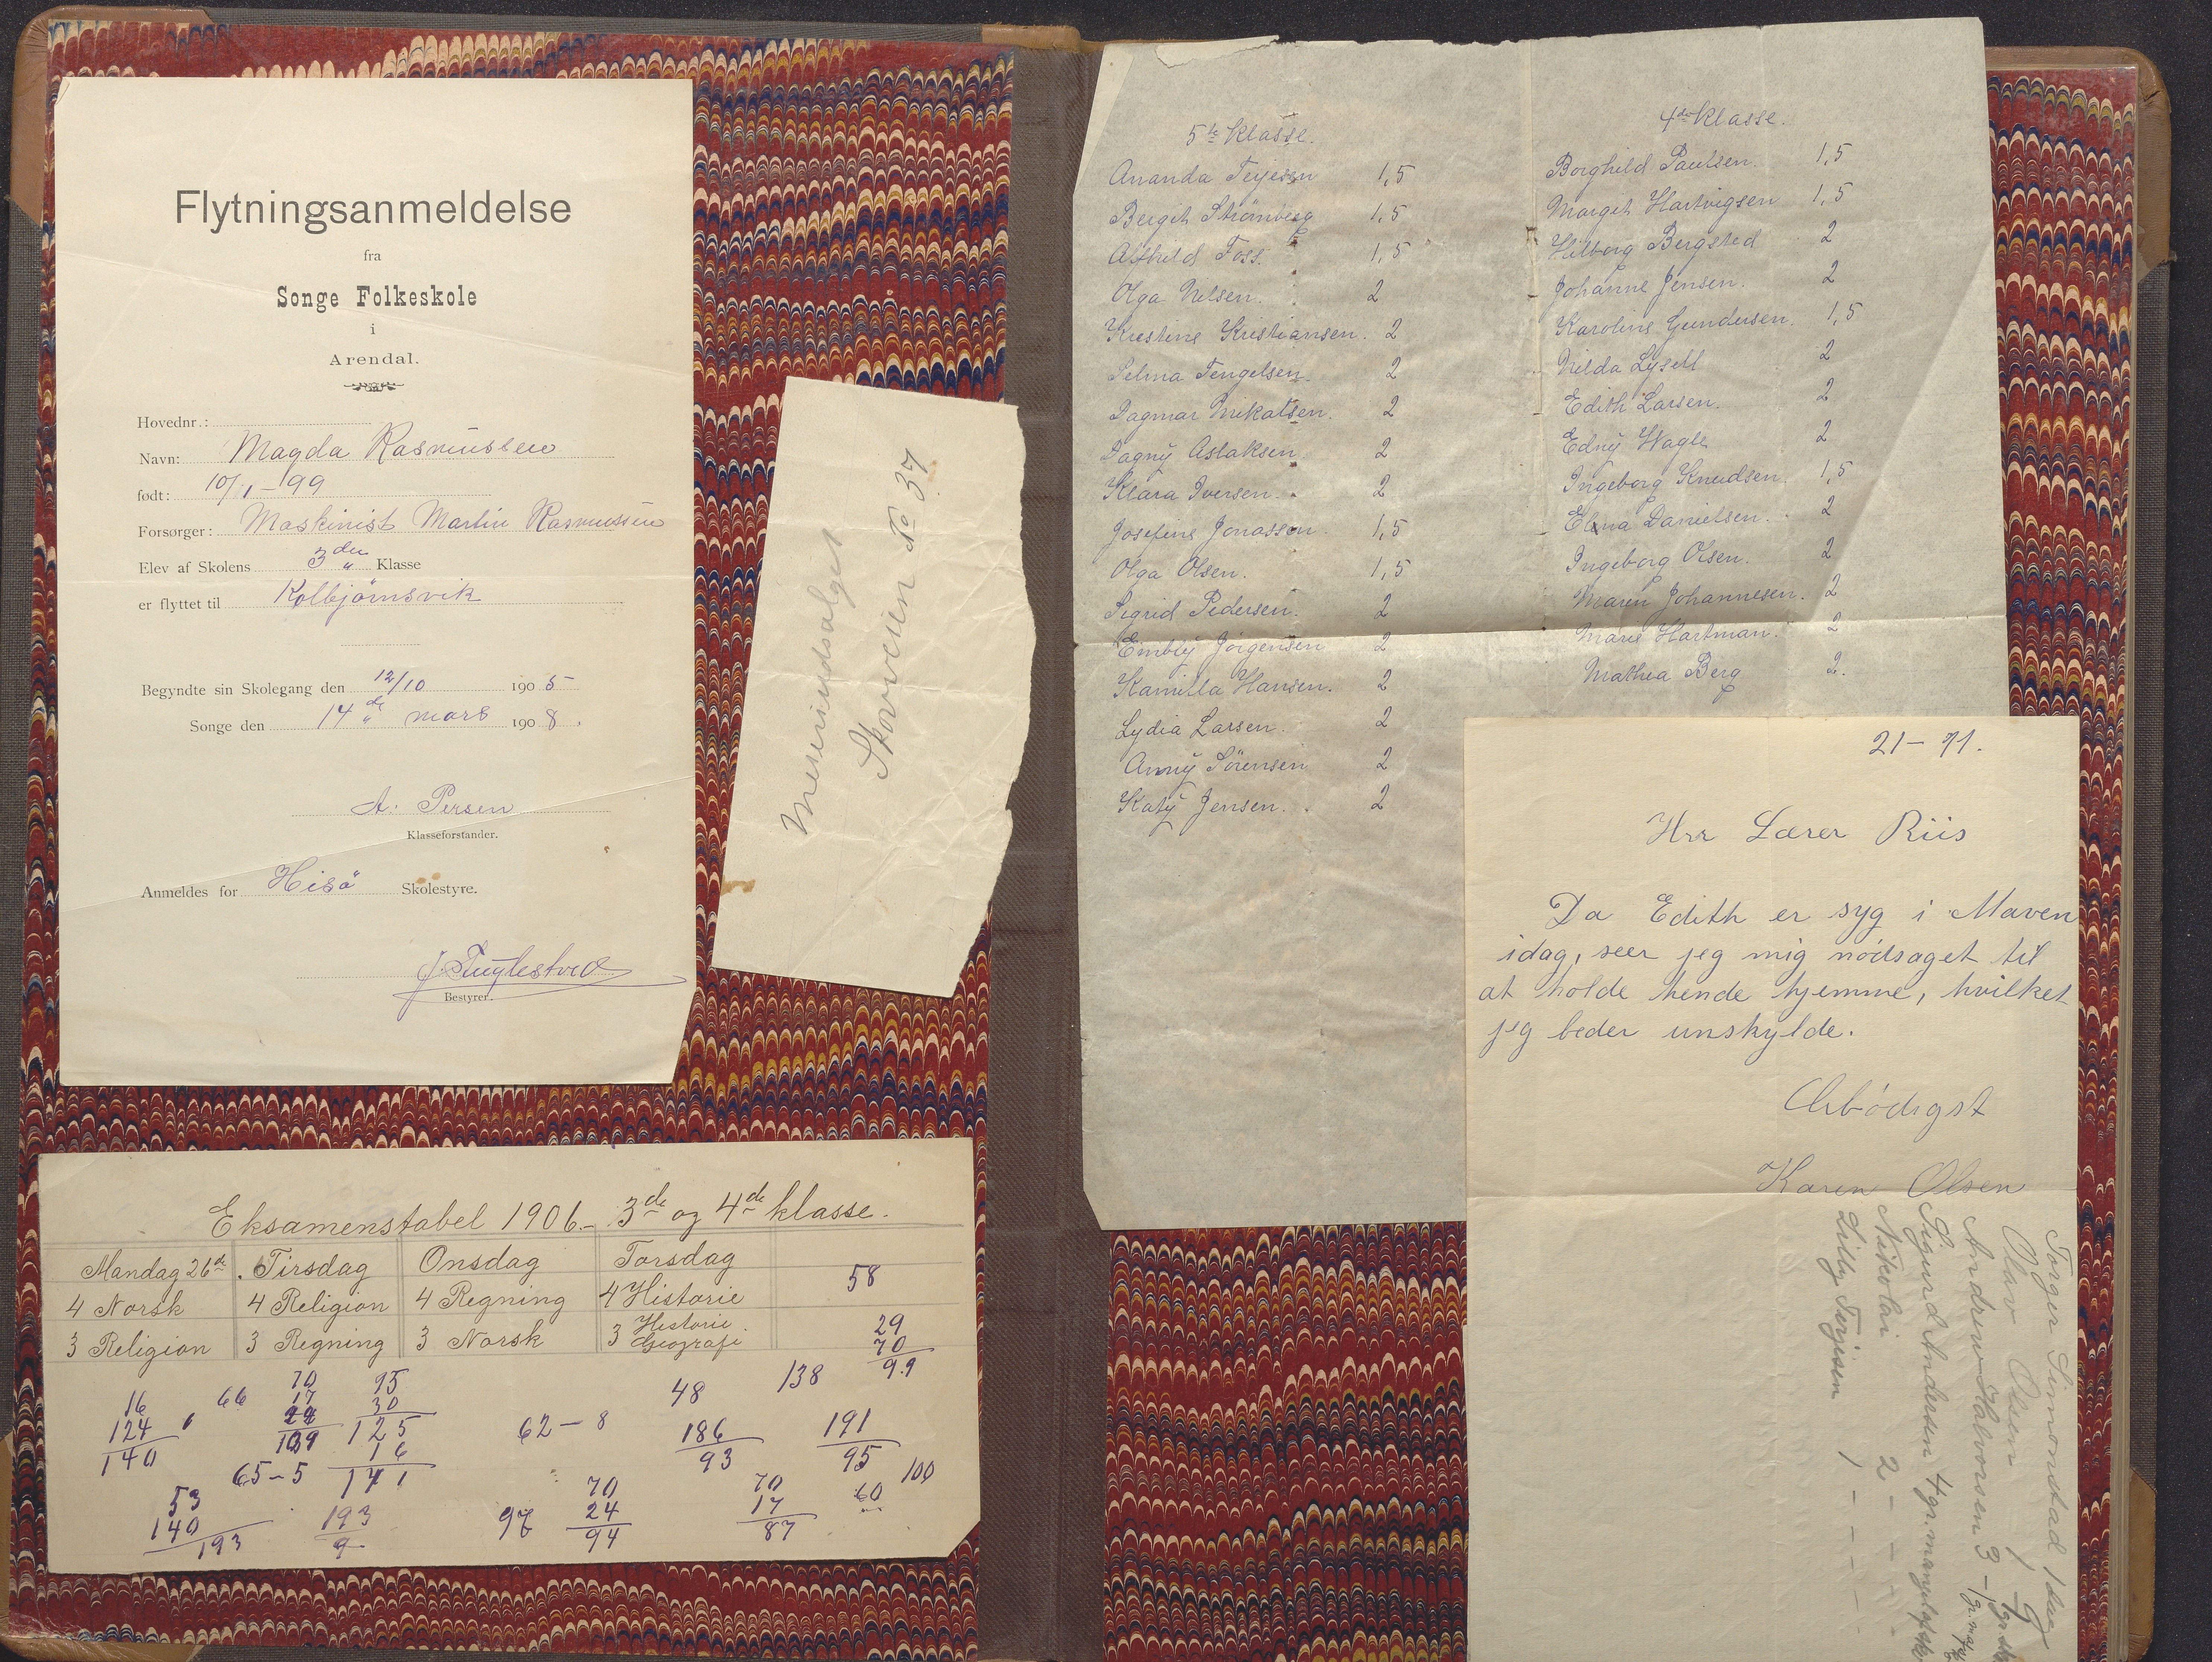 Flytningsanmeldelse
fra
Songe Folkeskole
i
Arendal.
Hovednr.:
Navn: Magda Rasmussen
født: 10/1-99
Forsørger: Maskinist Martin Rasmussen
Elev af Skolens 3die Klasse
er flyttet til Kolbjørnsvik
Begyndte sin Skolegang den 12/10 1905
Songe den 14de mars 1908.
A. Persen
Klasseforstander.
Anmeldes for Hisö Skolestyre.
Bestyrer.
Skovveien No 37
Eksamenstabel 1906.- 3de og 4de klasse.
Mandag 26de. Tirsdag Onsdag Torsdag
4 Norsk 4 Religion 4 Regning 4 Historie 58
3 Religion 3 Regning 3 Norsk 3 Historie. Geografi
29
70
99
16
124
140
66
70
17
139
95
30
125
16
141
62-8
48
186
93
138
191
95
100
65-5
53
140
193
193
9
97
70
24
94
70
17
87
60
5te Klasse.
Ananda Terjesen 1,5
Bergit Strömberg 1,5
Alfhild Foss. 1,5
Olga Nilsen. 2
Kirstine Kristiansen. 2
Selma Tengelsen. 2
Dagmar Mikalsen. 2
Dagny Aslaksen. 2
Klara Iversen. 2
Josefine Jonassen. 1,5
Olga Olsen. 1,5
Sigrid Pedersen. 2
Embly Jörgensen 2
Kamilla Hansen. 2
Lydia Larsen. 2
Anny Sörensen 2
Katy Jensen. 2
4de Klasse.
Borghild Paulsen. 1,5
Margit Hartvigsen 1,5
Hilborg Bergsted 2
Johanne Jensen. 2
Karoline Gundersen. 1,5
Hilda Lysell 2
Edith Larsen. 2
Edny Wagle 2
Ingeborg Knudsen 1,5
Elna Danielsen. 2
Ingeborg Olsen. 2
Maren Johannesen. 2
Marie Hartman. 2
Mathea Berg 2.
21-11.
Hrr Lærer Riis
Da Edith er syg i Maven
idag, seer jeg mig nødsaget til
at holde hende hjemme, hvilket
jeg beder unskylde.
Ærbødigst
Karen Olsen
Torger Simonstad 1 dag
Olav Olsen 1
Andrew Halvorsen 3
Sigurd Andersen 4 gr.
Nikolai 2 - - -
Lilly Terjesen 1 - - -